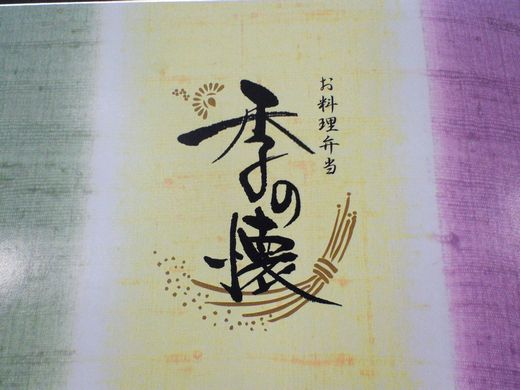 お料理弁当
季の懐